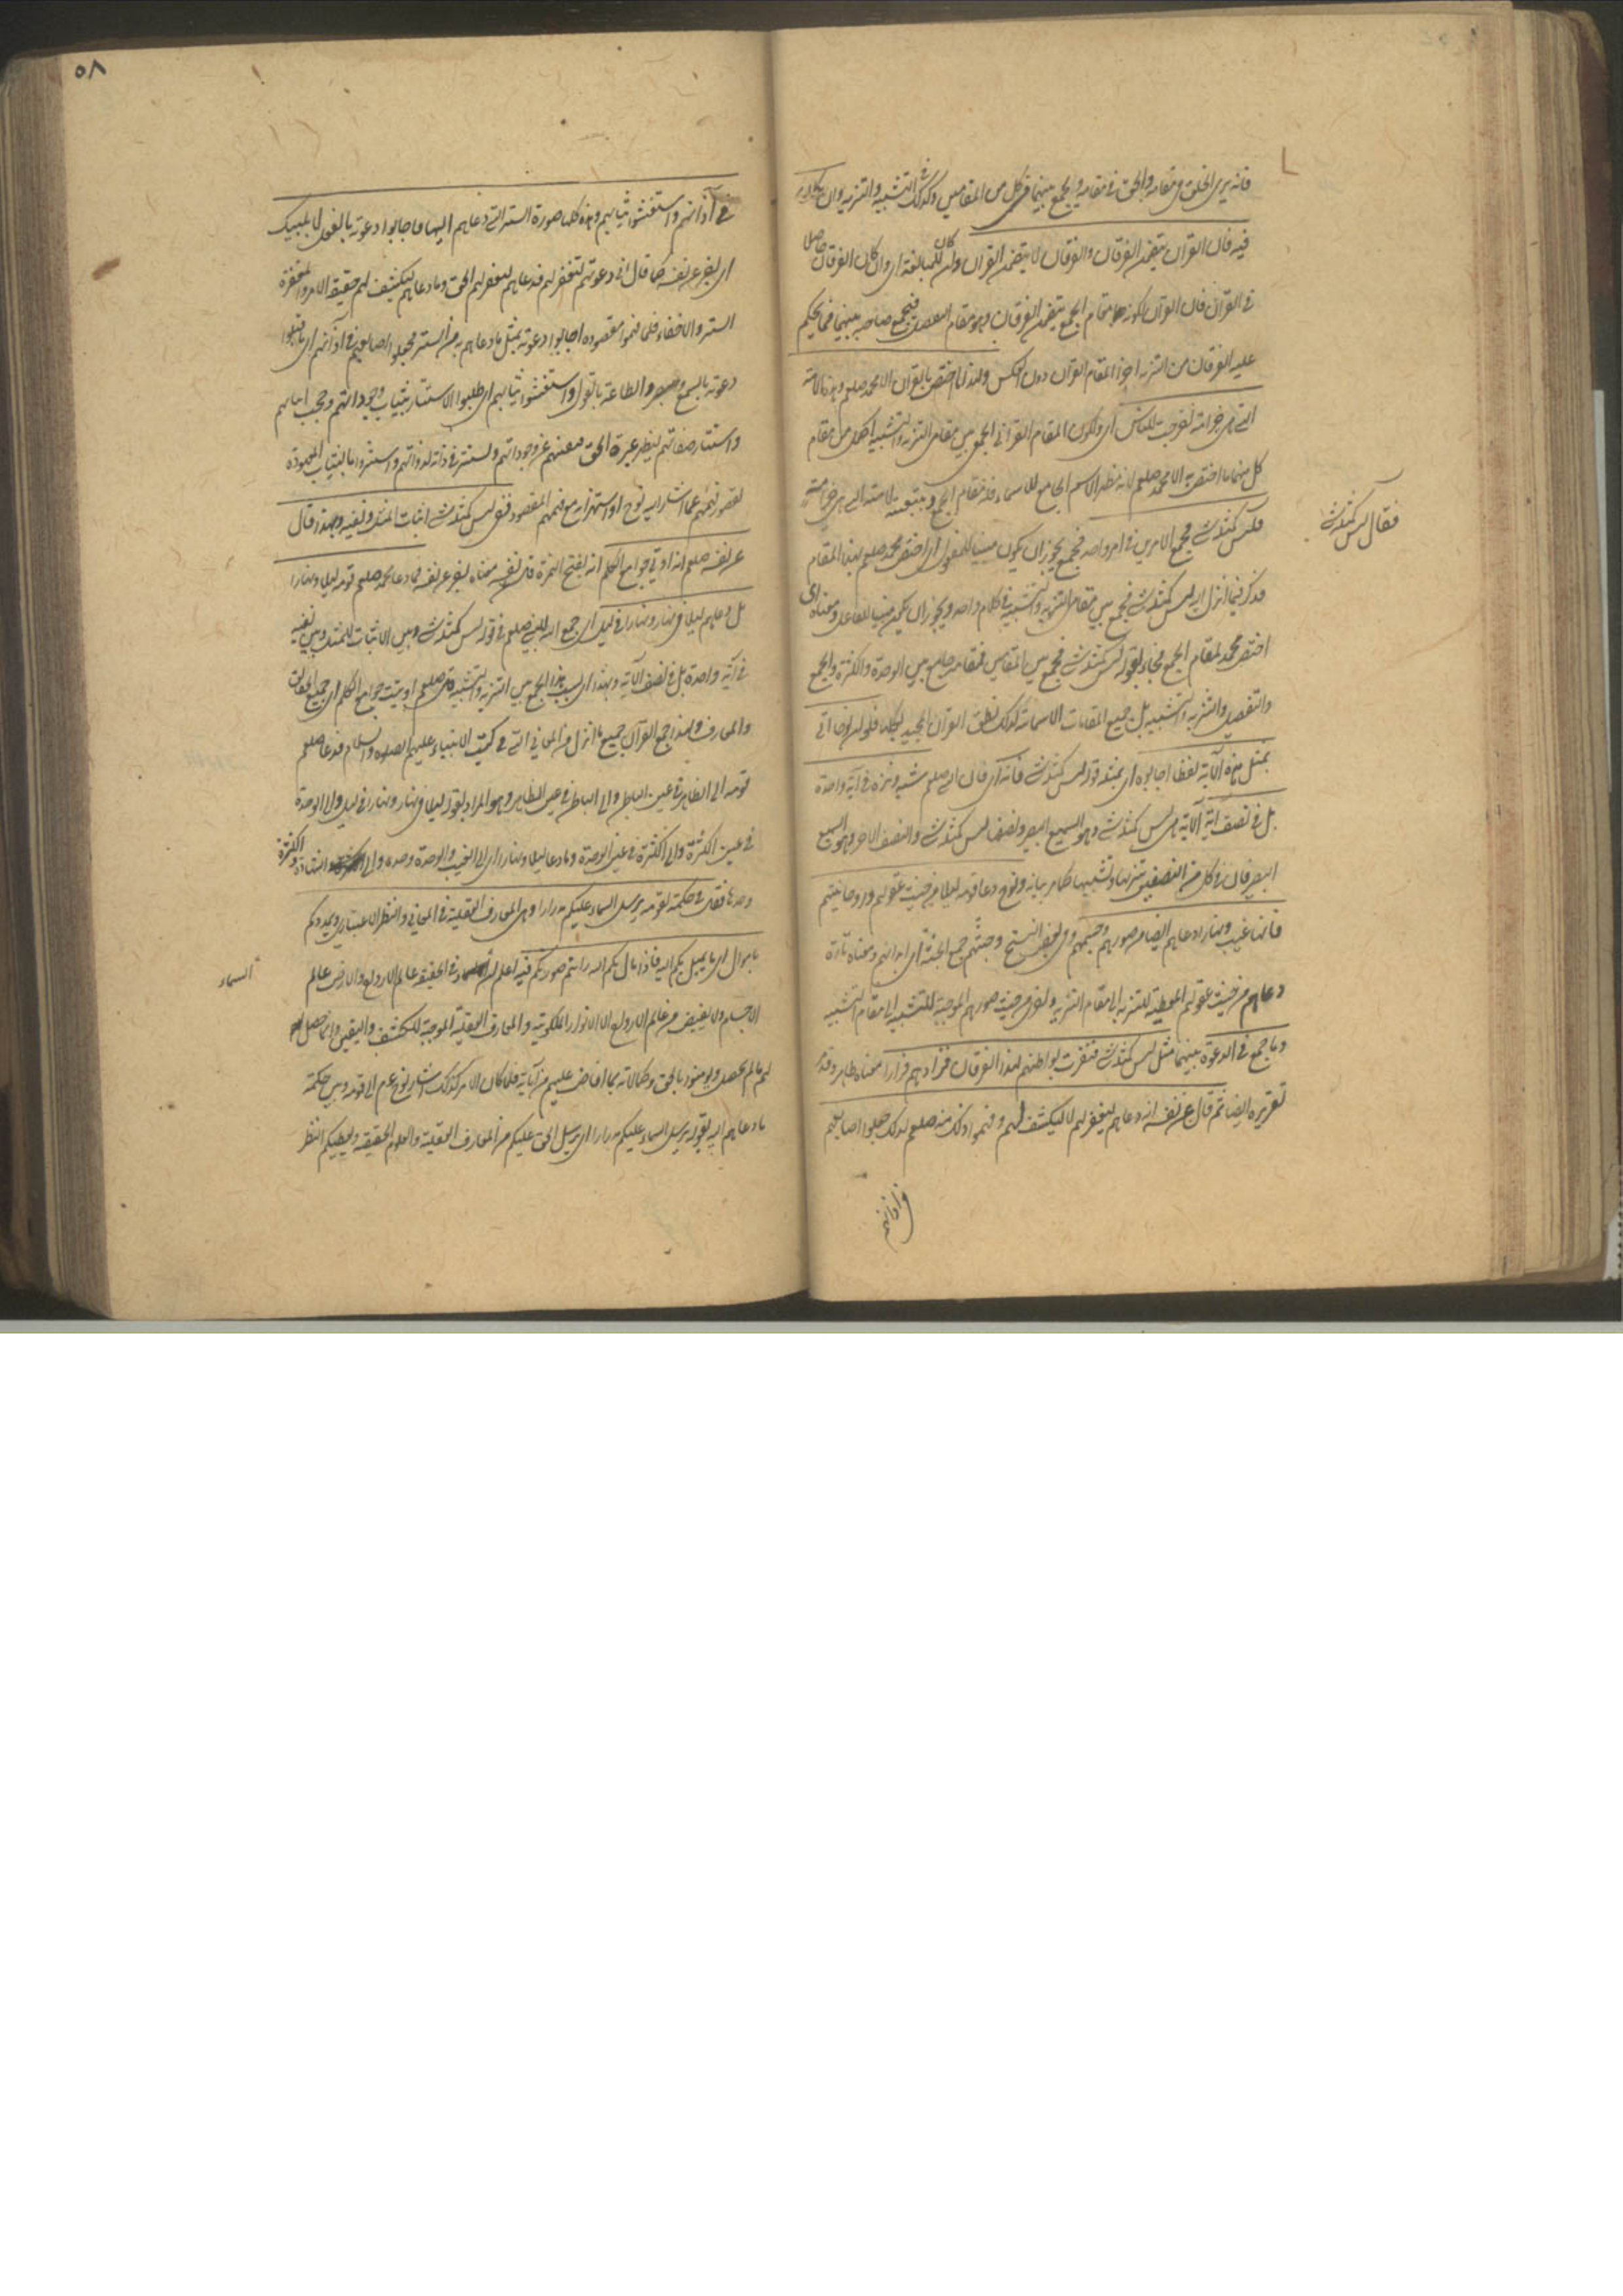 فانه يرى الخلق فى مقامه والحق فى مقامه ويجمع بينهما فى كل من المقامين وكذلك التشبيه والتنزيه وان كان
فيه فان القرآن يتضمن الفرقان والفرقان لا يتضمن القرآن وان كان للمبالغة اى وان كان الفرقان حاصلا
فى القرآن فان القرآن لكونه مقام الجمع يتضمن الفرقان وهو مقام التفصيل فيجمع صاحبه بينهما فيما يحكم
عليه الفرقان من التنزيه اجزاء لمقام القرآن دون العكس ولهذا ما اختص بالقرآن الا محمد صلعم وهذه الامة
التى هى خير امة اخرجت للناس اى ولكون المقام القرآنى الجمعى بين مقامى التنزيه والتشبيه اكمل من مقام
كل منهما ما اختص به الا محمد صلعم لانه مظهر الاسم الجامع للاسماء فله مقام الجمع وبتبعيته لامته التى هى خير امة
فليس كمثله شئ فجمع الامرين فى امر واحد فجمع يجوز ان يكون مبنيا للمفعول اى اختص محمد صلعم بهذا المقام
فقال ليس كمثله شئ
فذكر فيما انزل اليه ليس كمثله شئ فجمع بين مقامى التنزيه والتشبيه فى كلام واحد ويجوز ان يكون مبنيا للفاعل ومعناه اى
اختص محمد بمقام الجمع فجاء بقوله ليس كمثله شئ فجمع بين المقامين فمقامه جامع بين الوحدة والكثرة والجمع
والتفصيل والتنزيه والتشبيه بل جميع المقامات الاسمائية لذلك نطق القرآن المجيد بكلها فلو ان نوحا اتى
بمثل هذه الآية لفظا اجابوه اى بمثل قوله ليس كمثله شئ فانه اى فان النبى صلعم شبه ونزه فى آية واحدة
بل فى نصف آية الآية هى ليس كمثله شئ وهو السميع البصير ونصفها ليس كمثله شئ والنصف الآخر وهو السميع
البصير فان فى كل من النصفين تنزيها وتشبيها كما مر بيانه ونوح دعا قومه ليلا من حيث عقولهم وروحانيتهم
فانها غيب ونهارا دعاهم ايضا من صورهم وجسمهم وفى بعض النسخ وجثثهم جمع الجثة اى ابدانهم ومعناه تارة
دعاهم من حيث عقولهم المعطية للتنزيه الى مقام التنزيه واخرى من حيث صورهم الموجبة للتشبيه الى مقام التشبيه
وما جمع فى الدعوة بينهما مثل ليس كمثله شئ فنفرت بواطنهم لهذا الفرقان فزادهم فرارا معناه ظاهر وقد مر
تقريره ايضا ثم قال عن نفسه انه دعاهم ليغفر لهم لا ليكشف لهم وفهموا ذلك منه صلعم لذلك جعلوا اصابعهم
فى آذانهم
٥٨
فى آذانهم واستغشوا ثيابهم وهذه كلها صورة الستر التى دعاهم اليها فاجابوا دعوته بالفعل لا بلبيك
اى اخبر عن نفسه كما قال انى دعوتهم لتغفر لهم فدعاهم ليغفر لهم الحق وما دعاهم ليكشف لهم حقيقة الامر والمغفرة
الستر والاخفاء فلما فهموا مقصوده اجابوا دعوته بمثل ما دعاهم به من الستر فجعلوا اصابعهم فى آذانهم اى ما قبلوا
دعوته بالسمع والطاعة بالقول واستغشوا ثيابهم اى طلبوا الاستتار بثياب وجوداتهم وحجب انياتهم
واستتار صفاتهم ليظهر غيرة الحق فيفنيهم عن وجوداتهم ويستتر فى ذاته لذواتهم واستتروا بالثياب المعهودة
لقصور فهمهم عما اشار اليه نوح او استهزاء مع فهمهم المقصود ففى ليس كمثله شئ اثبات المثل ونفيه وبهذا قال
عن نفسه صلعم انه اوتى جوامع الكلم انه بفتح الهمزة قال نفسه معناه اخبر عن نفسه فما دعا محمد صلعم قومه ليلا ونهارا
بل دعاهم ليلا فى نهار ونهارا فى ليل اى جمع النبى صلعم فى قوله ليس كمثله شئ وبين الاثبات للمثل وبين نفيه
فى آية واحدة بل فى نصف الآية وبهذا اى بسبب هذا الجمع بين التنزيه والتشبيه قال صلعم اوتيت جوامع الكلم اى جميع الحقائق
والمعارف ولهذا جمع القرآن جميع ما انزل من المعانى التى فى كتب الانبياء عليهم الصلوة والسلام فدعا صلعم
قومه الى الظاهر فى عين الباطن والى الباطن فى عين الظاهر وهو المراد بقوله ليلا فى نهار ونهارا فى ليل والى الوحدة
فى عين الكثرة والى الكثرة فى عين الوحدة وما دعا ليلا ونهارا اى الى الغيب والوحدة وحده والى الشهادة والكثرة
وحدها فقال فى حكمته لقومه يرسل السماء عليكم مدرارا وهى المعارف العقلية فى المعانى والنظر الاعتبارى ويمددكم
باموال اى بما يميل بكم اليه فاذا مال بكم اليه رايتم صورتكم فيه اعلم ان السماء فى الحقيقة عالم الارواح والارض عالم
السماء
الاجسام ولا يفيض من عالم الارواح الا الانوار الملكوتية والمعارف العقلية الموجبة للكشف واليقين وانما حصل
لهم ما لم يحصل ويومنوا بالحق وكمالاته بما افاض عليهم من آياته فلما كان الامر كذلك اشار نوح عم الى قومه وبين حكمة
ما دعاهم اليه بقوله يرسل السماء عليكم مدرارا اى يرسل الحق عليكم من المعارف العقلية والعلوم الحقيقية ويعطيكم النظر